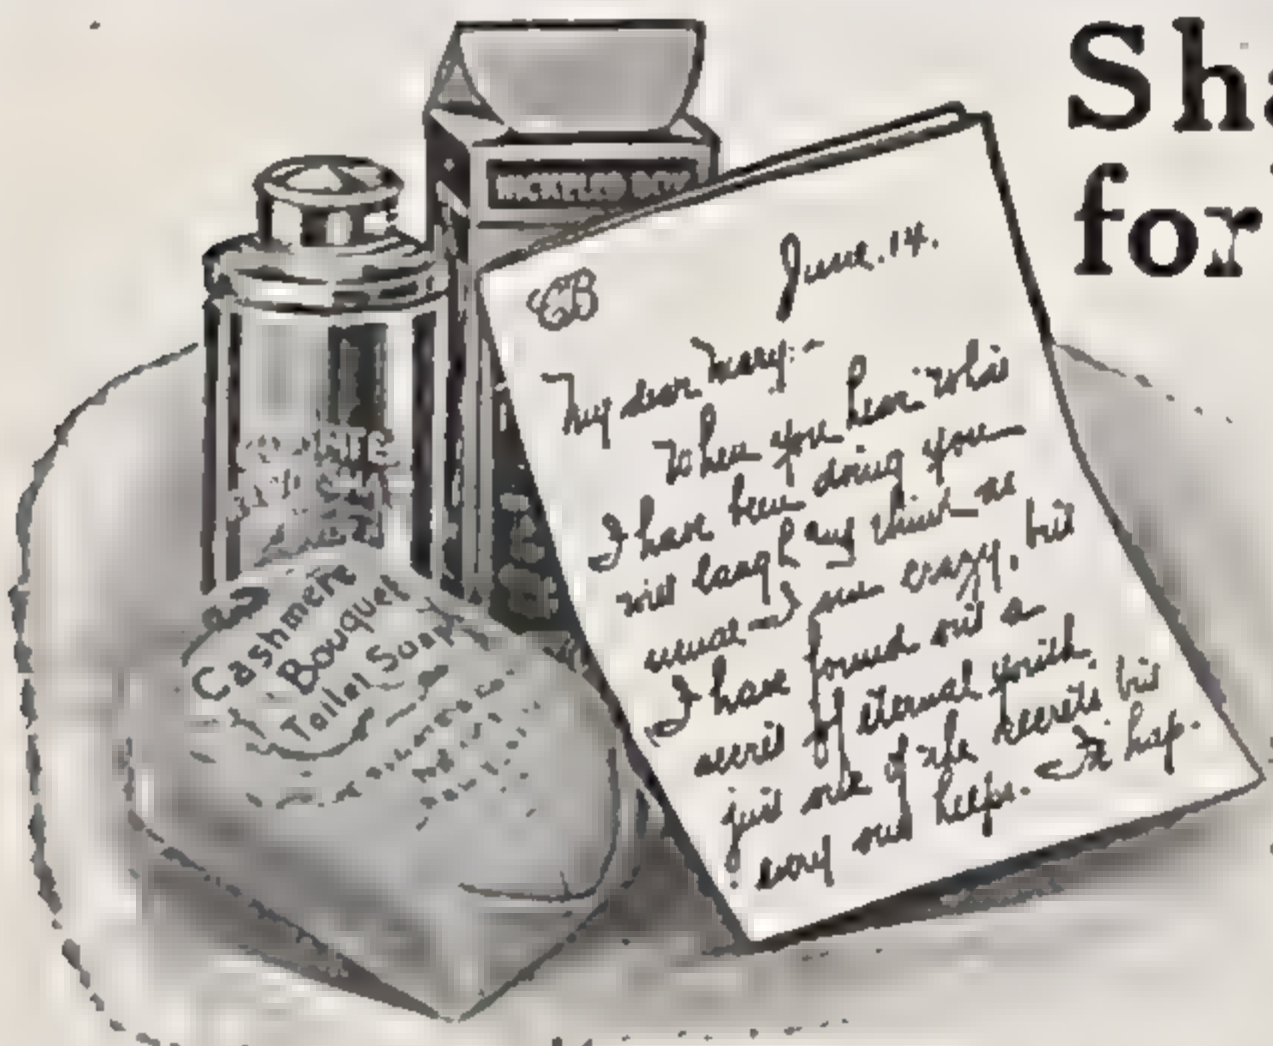 Sha
for
NICKELED BOX
June. 14.
CB
My dear Mary:-
When you hear what
I have been doing you
will laugh and think as
usual I am crazy, but
I have found out a
secret of eternal youth
just one of the secrets but
every one helps. It hap-
Cashmere
Bouquet
Toilet Soap